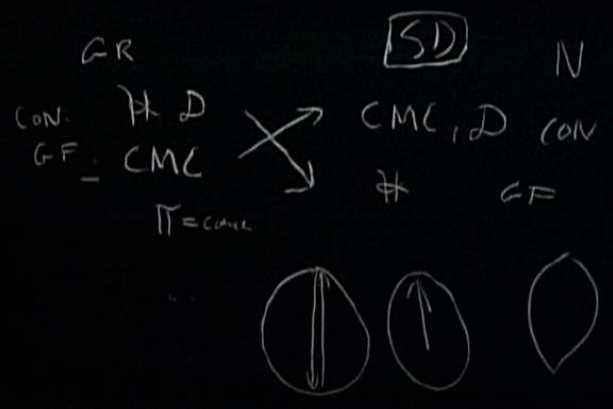 GR
SD
N
CON: H D
CMC, D CON
GF: CMC
H GF
π = conc